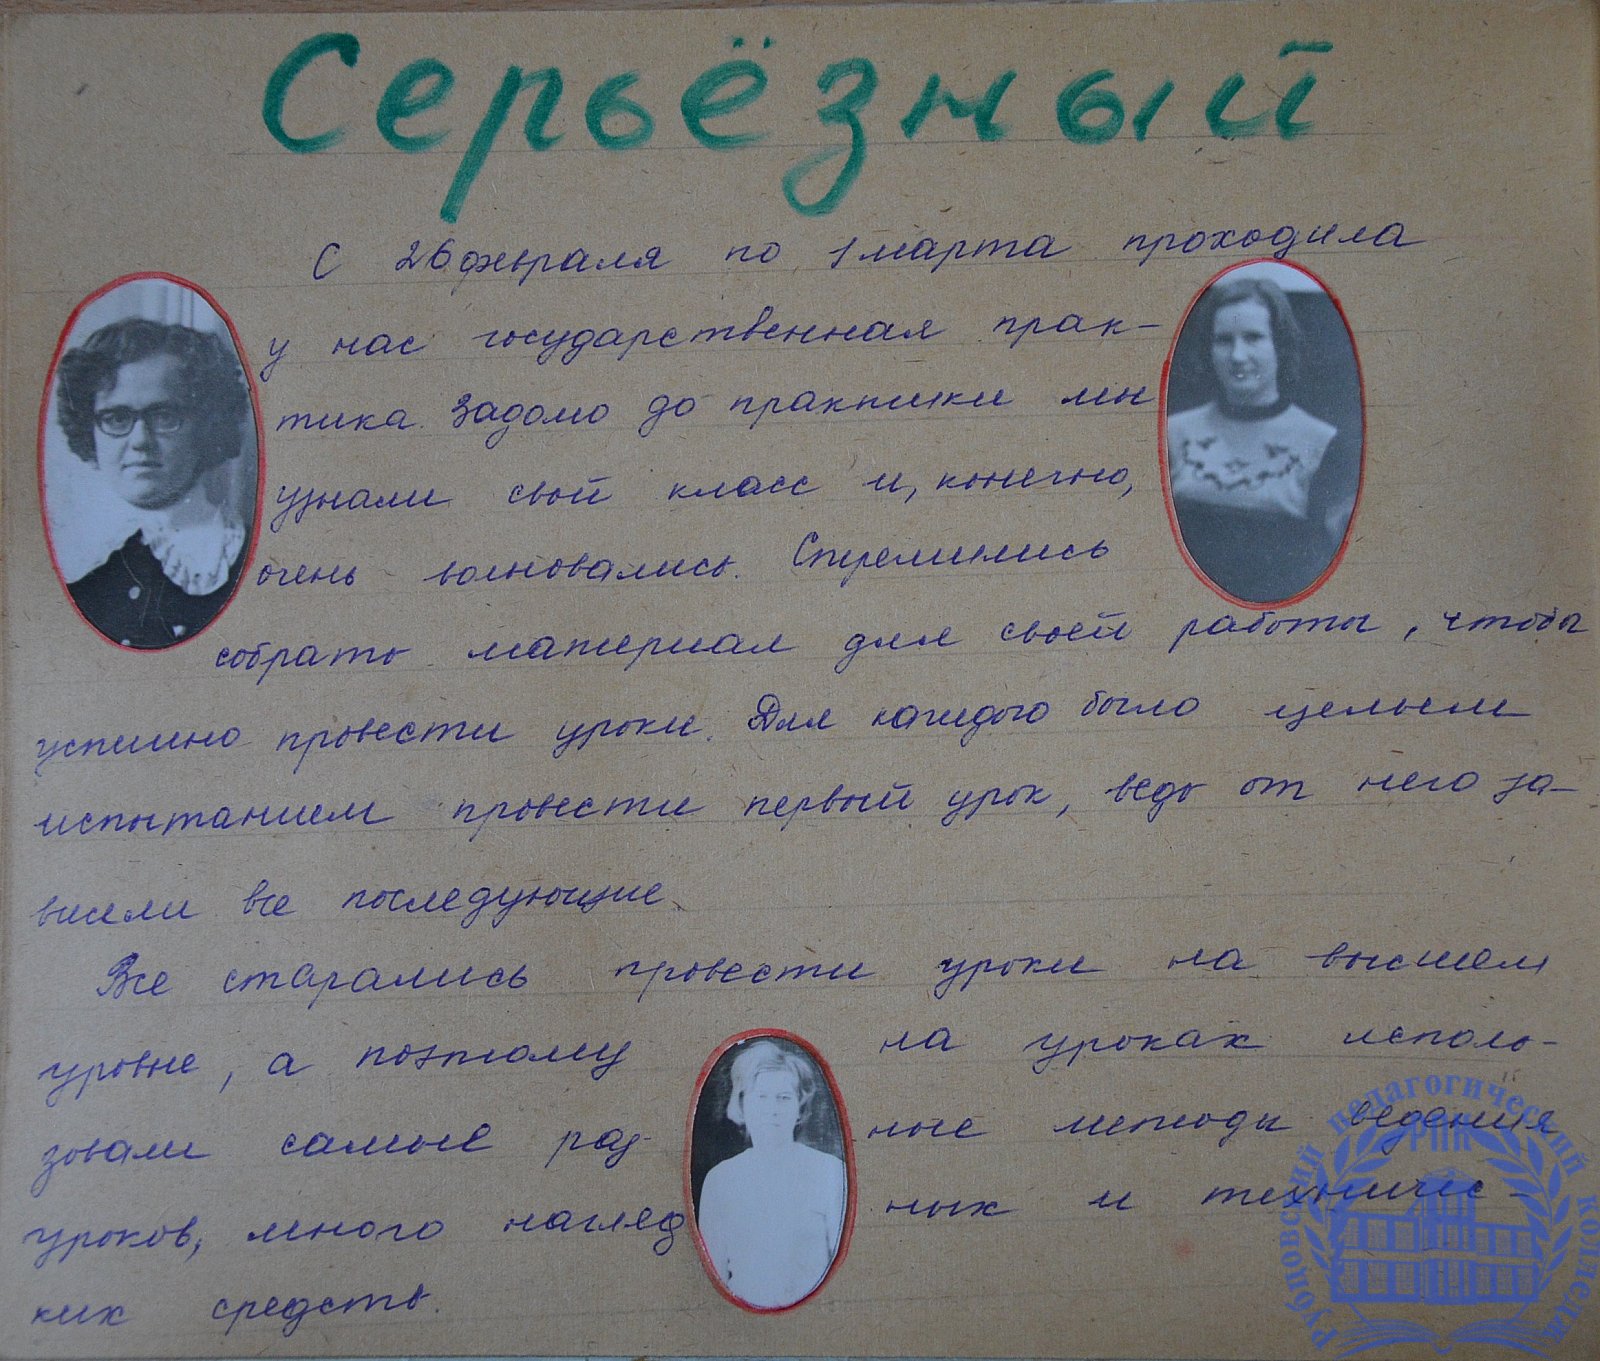 Серьёзный
С 26 февраля по 1 марта проходила
у нас государственная прак-
тика. Задомо до практики мы
узнали свой класс и, конечно,
очень волновались. Стремились
собрать материал для своей работы, чтобы
успешно провести уроки. Для каждого было целым
испытанием провести первый урок, ведь от него за-
висели все последующие.
Все старались провести уроки на высшем
уровне, а поэтому на уроках исполь-
зовали самые раз- ные методы ведения
уроков, много нагляд ных и техничес-
ких средств.
Рубцовский педагогический колледж
РПК